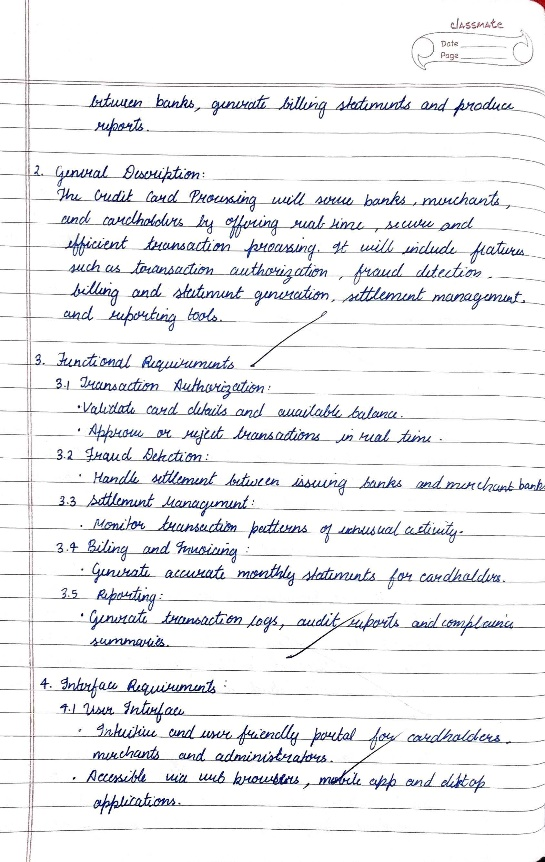 classmate
Date
Page
between banks, generate billing statements and produce
reports.
2. General Description:
The Credit Card Processing will serve banks, merchants,
and cardholders by offering real time, secure and
efficient transaction processing. It will include features
such as transaction authorization, fraud detection,
billing and statement generation, settlement management,
and reporting tools.
3. Functional Requirements
3.1 Transaction Authorization:
• Validate card details and available balance.
• Approve or reject transactions in real time.
3.2 Fraud Detection:
• Handle settlement between issuing banks and merchant banks
3.3 Settlement Management:
• Monitor transaction patterns of unusual activity.
3.4 Biling and Invoicing:
• Generate accurate monthly statements for cardholders.
3.5 Reporting:
• Generate transaction logs, audit reports and complaince
summaries.
4. Interface Requirements:
4.1 User Interface
• Intuitive and user friendly portal for cardholders,
merchants and administrators.
• Accessible via web browsers, mobile app and desktop
applications.